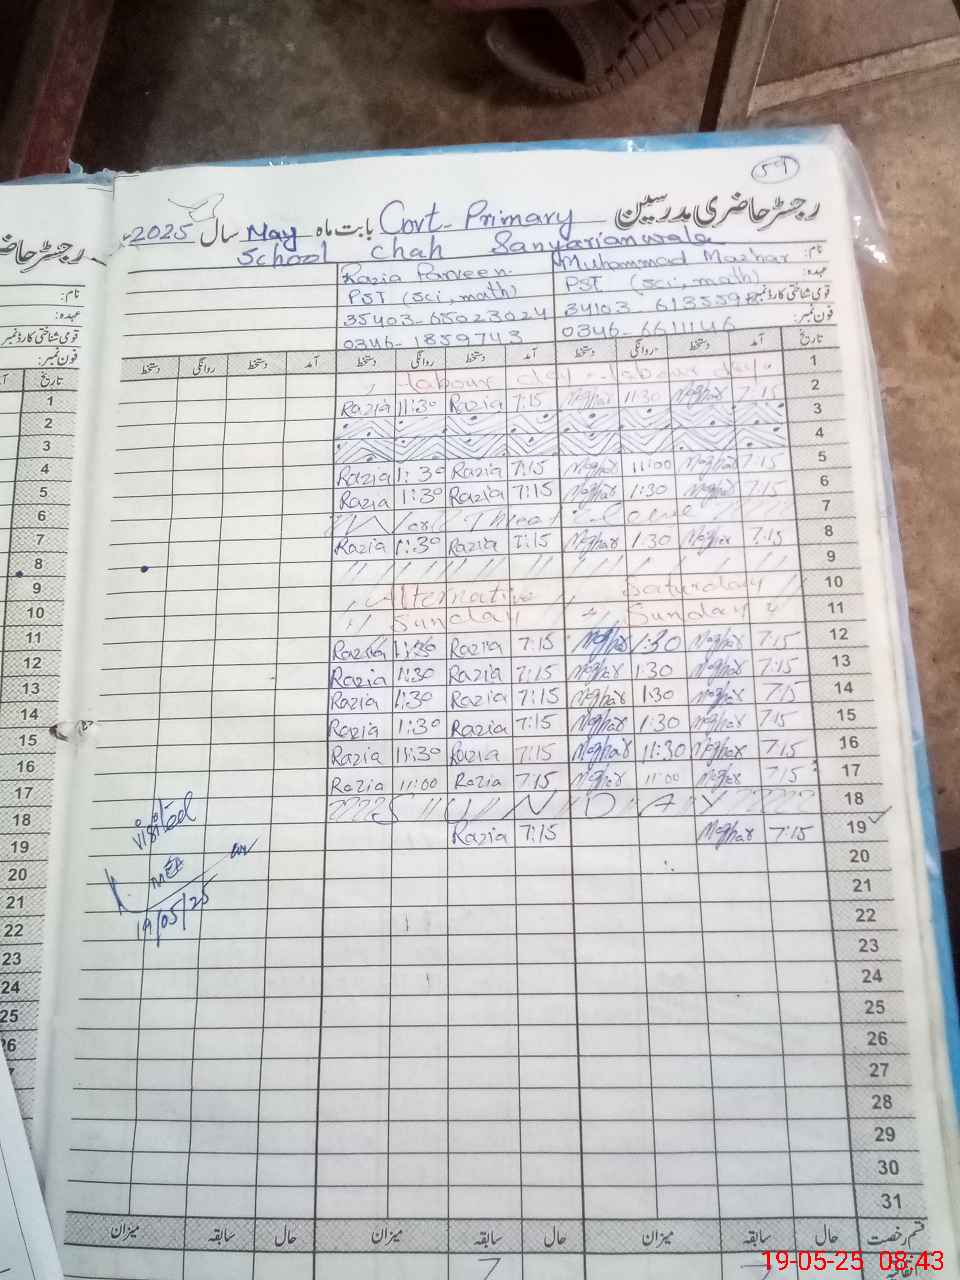 59
رجسٹر حاضری مدرسین Govt- Primary بابت ماہ May سال 2025
School chah Sanyarianwale
نام: Muhammad Mazhar Razia Parveen
عہدہ: PST (sci, math) PST (sci, math)
قومی شناختی کارڈ نمبر 34103-6135598 35403-65023024
فون نمبر: 0346-6611146 0346-1859743
تاریخ آمد دستخط روانگی دستخط آمد دستخط روانگی دستخط آمد دستخط روانگی دستخط
1 Labour day - Labour day
2 7:15 Mazhar 11:30 Mazhar 7:15 Razia 11:30 Razia
3
4
5 7:15 Mazhar 11:00 Mazhar 7:15 Razia 1:30 Razia
6 7:15 Mazhar 1:30 Mazhar 7:15 Razia 1:30 Razia
7 War Threat
8 7:15 Mazhar 1:30 Mazhar 7:15 Razia 1:30 Razia
9
10 Alternative Saturday
11 Sunday Sunday
12 7:15 Mazhar 1:30 Mazhar 7:15 Razia 1:30 Razia
13 7:15 Mazhar 1:30 Mazhar 7:15 Razia 1:30 Razia
14 7:15 Mazhar 1:30 Mazhar 7:15 Razia 1:30 Razia
15 7:15 Mazhar 1:30 Mazhar 7:15 Razia 1:30 Razia
16 7:15 Mazhar 11:30 Mazhar 7:15 Razia 11:30 Razia
17 7:15 Mazhar 11:00 Mazhar 7:15 Razia 11:00 Razia
18 SUNDAY
19 7:15 Mazhar 7:15 Razia
20
21
22
23
24
25
26
27
28
29
30
31
visited
MEA
19/05/25
قسم رخصت حال سابقہ میزان حال سابقہ میزان حال سابقہ میزان
اتفاقیہ
رجسٹر حاضر
نام:
عہدہ:
قومی شناختی کارڈ نمبر
فون نمبر:
تاریخ
1
2
3
4
5
6
7
8
9
10
11
12
13
14
15
16
17
18
19
20
21
22
23
24
25
26
19-05-25 08:43